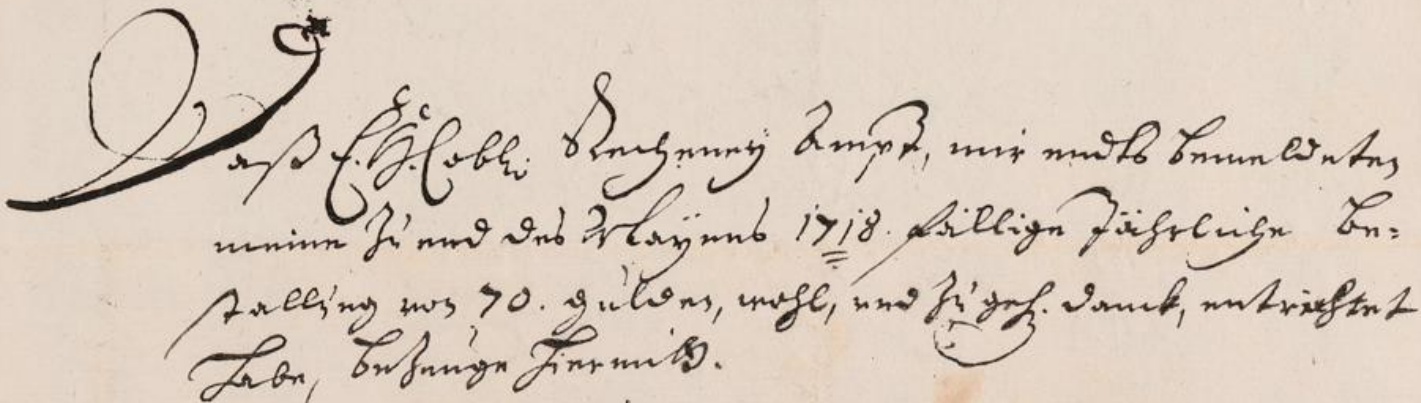 Daß E. H. Löbl. Recheney Ampt, mir endts bemeldeten
meine zu end des Mayens 1718. fällige Jährliche be=
stallung von 70. gulden, wohl, und zu geh. danck, entrichtet
habe, bezeuge hiermitt.